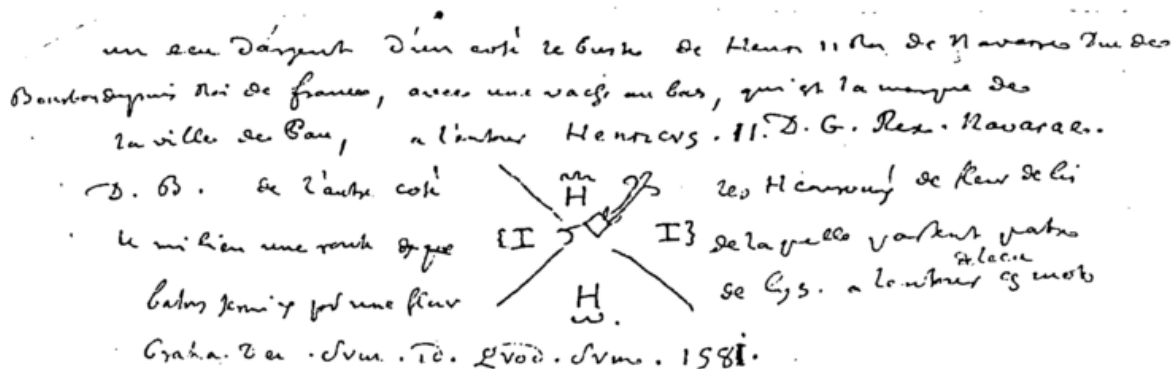 un ecu d'argent d'un costé le buste de Henri II Roi de Navarre Duc de
Bourbon depuis Roi de france, avec une vache au bas, qui est la marque de
la ville de Pau, a l'entour Henricvs . II . D . G . Rex . Navarae .
D . B . de l'autre costé H les H couronné de fleur de lis
le milieu une {I I} de laquelle partent quatre
batons par une fleur H de lys . a l'entour ces mots
Gratia . Dei . Svm . Id . Qvod . Svm . 1581 .